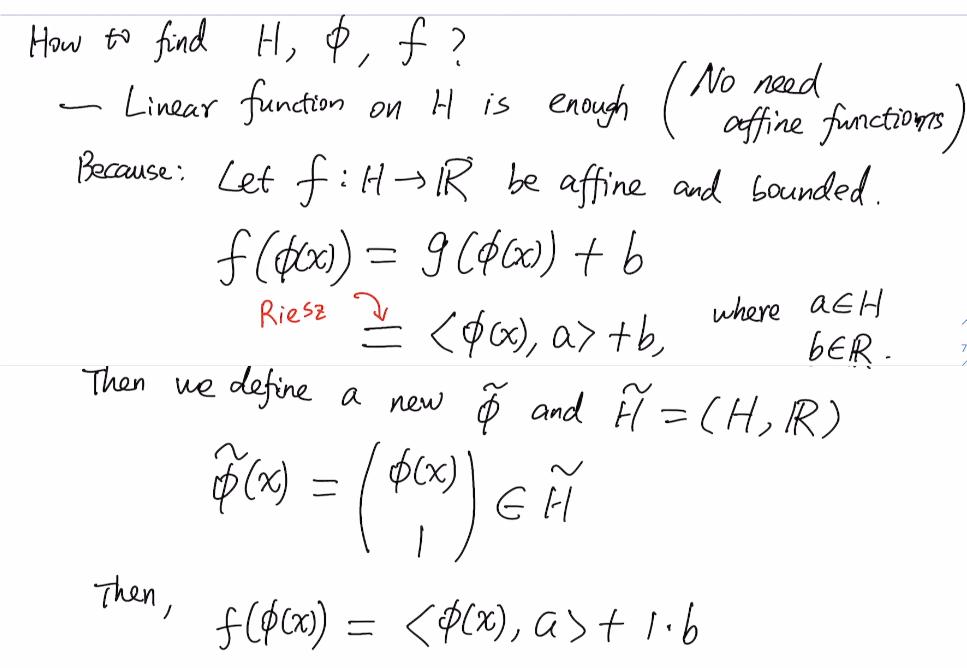 How to find H, ϕ, f ?
— Linear function on H is enough (No need affine functions)
Because: Let f : H → ℝ be affine and bounded.
f(ϕ(x)) = g(ϕ(x)) + b
Riesz = <ϕ(x), a> + b, where a∈H b∈ℝ.
Then we define a new ϕ̃ and H̃ = (H, ℝ)
ϕ̃(x) = (ϕ(x) 1) ∈ H̃
Then, f(ϕ(x)) = <ϕ(x), a> + 1·b